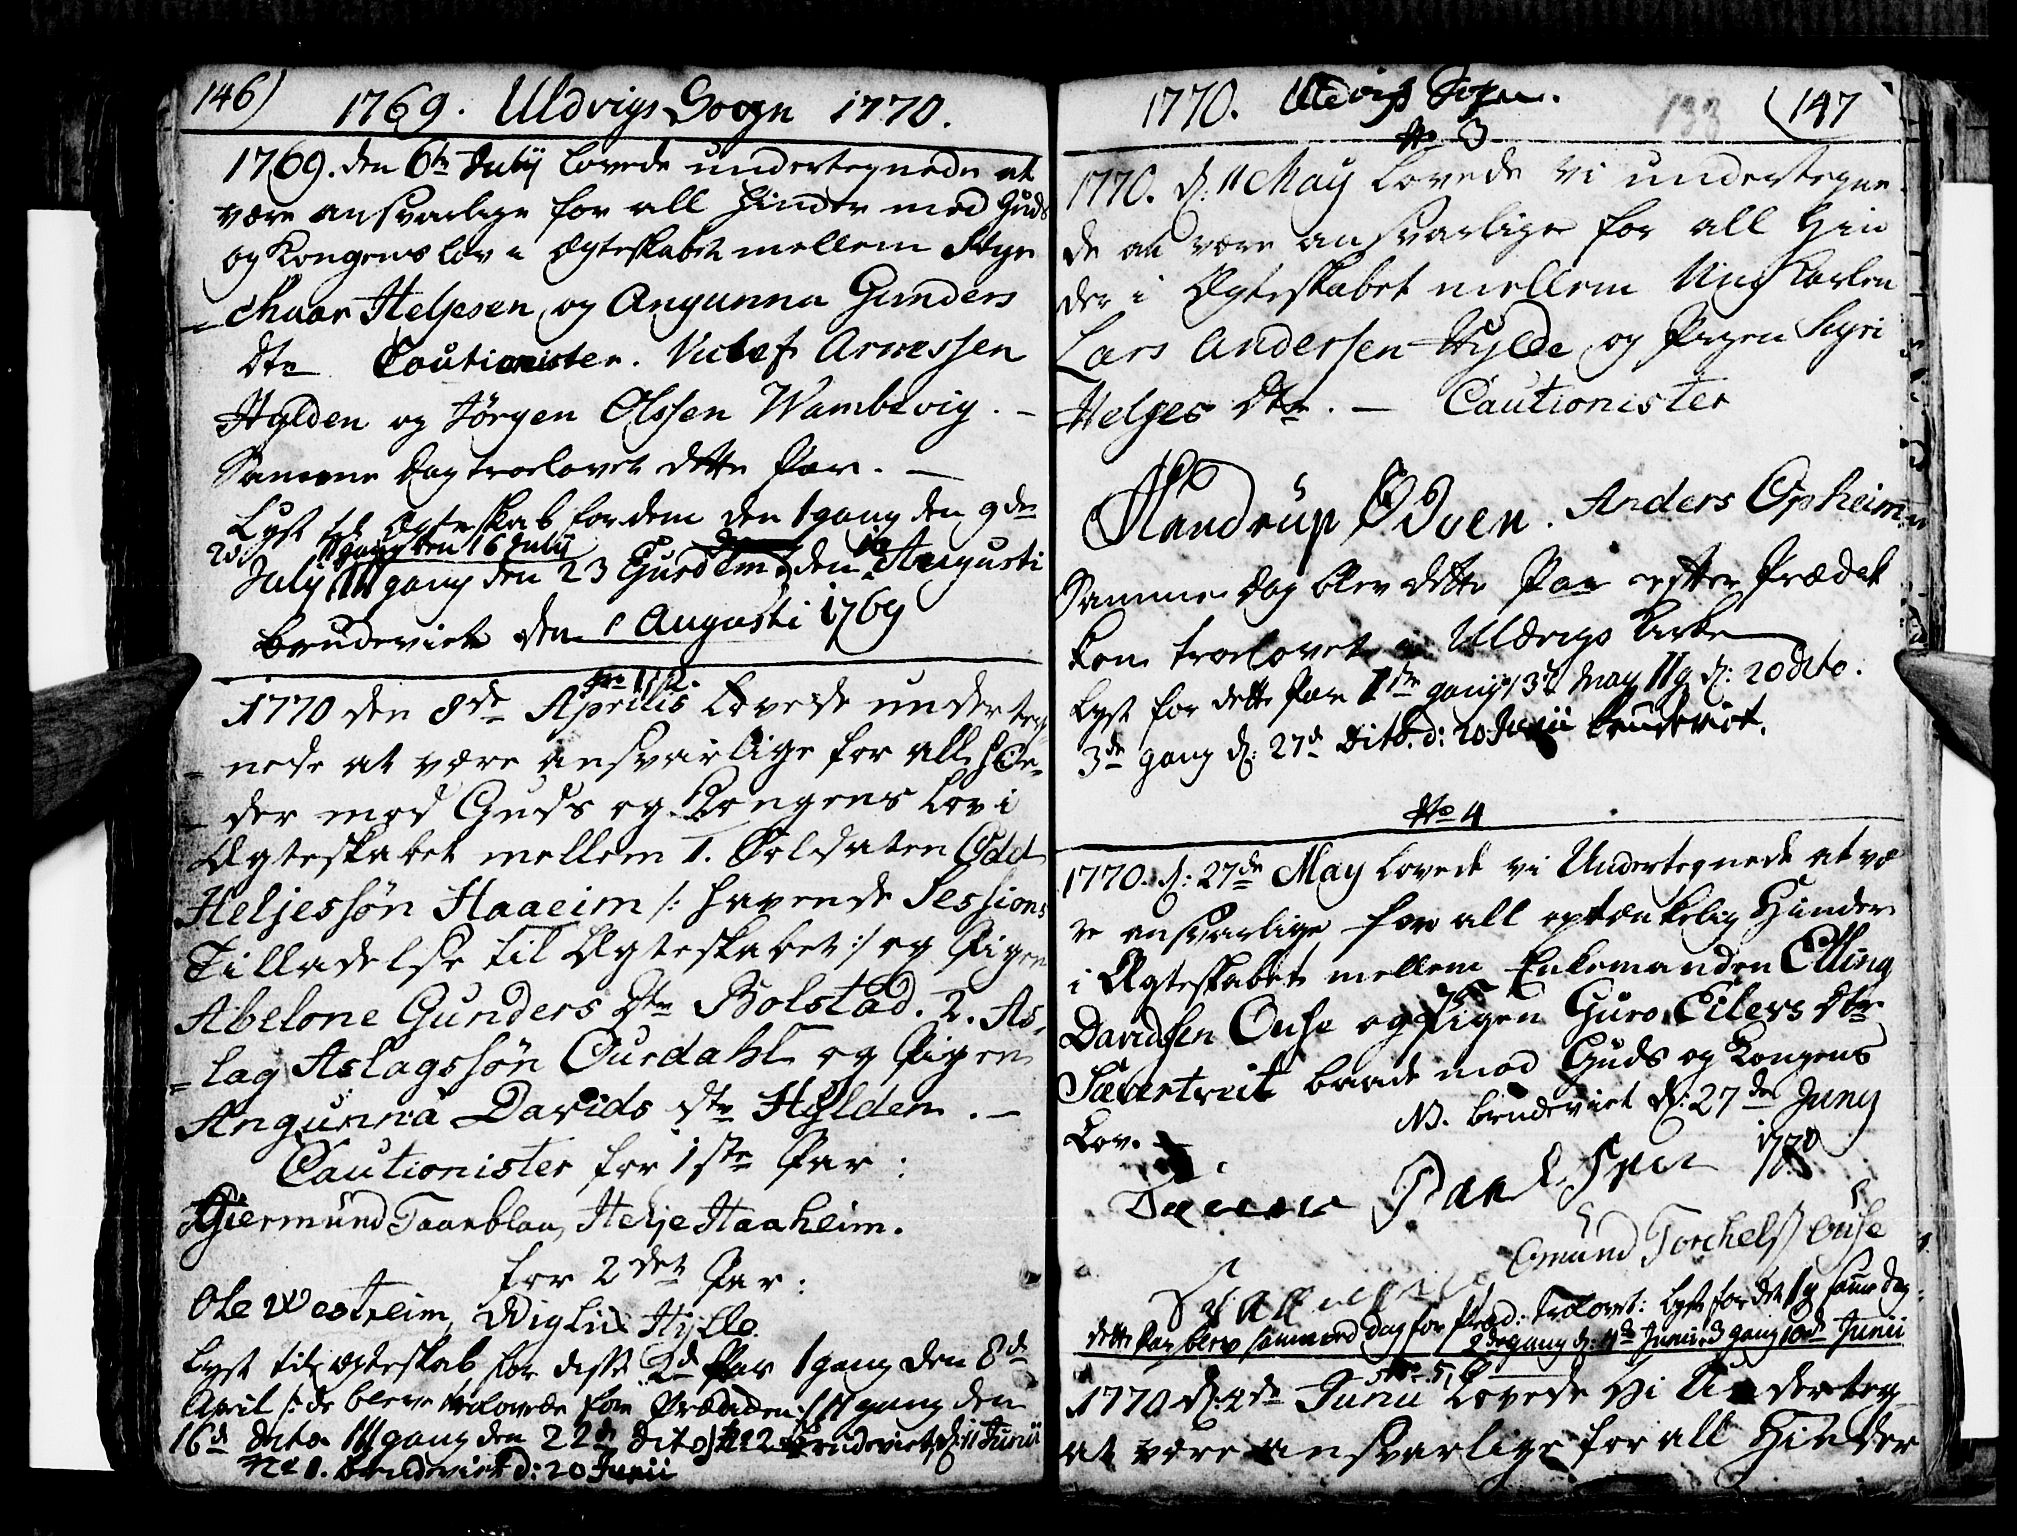 146)
1769. Uldvigs Sogn 1770.
1769. den 6te Julij lovede undertegnede at
være ansvarlige for all Hinder mod Guds
og Kongens lov i Ægteskabet mellem Styr
Heljesen og Angunna Gunders
Dtr Cautionister. Arnessen
Hylden og Jørgen Olssen Wambevig. –
Samme Dag troelovet dette Par. –
Lyst til Ægteskab for dem den 1 gang den 9de
II gang den 16 July
July III gang den 23 den Augusti
brudeviet den 1 Augusti 1769
No 1, 2.
1770 den 8de Aprilis Lovede underteg
nede at være ansvarlige for all Hin-
der mod Guds og Kongens Lov i
Ægteskabet mellem 1. Soldaten Odd
Heljessøn Haaeim /: havende Sessions
Tilladelse til Ægteskabet :/ og Pigen
Abelone Gunders Dtr Bolstad. 2. As-
lag Aslagssøn Ouredahl og Pigen
Angunna Davids dtr Hylden. –
Cautionister for 1ste Par:
Giermund Taarblaa, Helje Haaheim.
for 2det Par:
Ole Westreim, Wiglik Hylle.
Lyst til ægteskab for disse 2de Par 1 gang den 8de
April /: de bleve trolovede før Prædiken :/ II gang den
16de dito III gang den 22de dito No 2 brudeviet d: 11 Junii
No 1. brudeviet d: 20 Junii
1770. Uldvigs Sogn.
133
(147
No 3
1770. d: 11 May Lovede vi undertegne-
de at være ansvarlige for all Hin
der i Ægteskabet mellem Ung Karlen
Lars Andersen Hylde og Pigen Syri
Helges Dtr. – Cautionister
Handrup ØDven. Anders Opheim
Samme Dag blev dette Par efter Prædik
ken troelovet i Uldvigs Kirke
Lyst for dette Par 1ste gang 13de May II g d: 20 dito.
3de gang d: 27de Dito. d: 20 Junii brudeviet.
No 4
1770. d: 27de May Lovede vi Undertegnede at væ
re ansvarlige for all optænkelig Hinder
i Ægteskabet mellem Enkemanden Elling
Davidsen Ouse og Pigen Guro Eilers Dtr
Sævertveit baade mod Guds og Kongens
Lov.
NB. brudeviet d: 27de Juny
1770
Omund Torchels Ouse
dette Par blev samme Dag for Præd: trolovet: Lyst for det 1 g samme Dag
2de gang d: 4de Junii 3 gang 10de Junii
No 5, 6
1770 d: 2de Junii Lovede Vi Underteg
at være ansvarlige for all Hinder